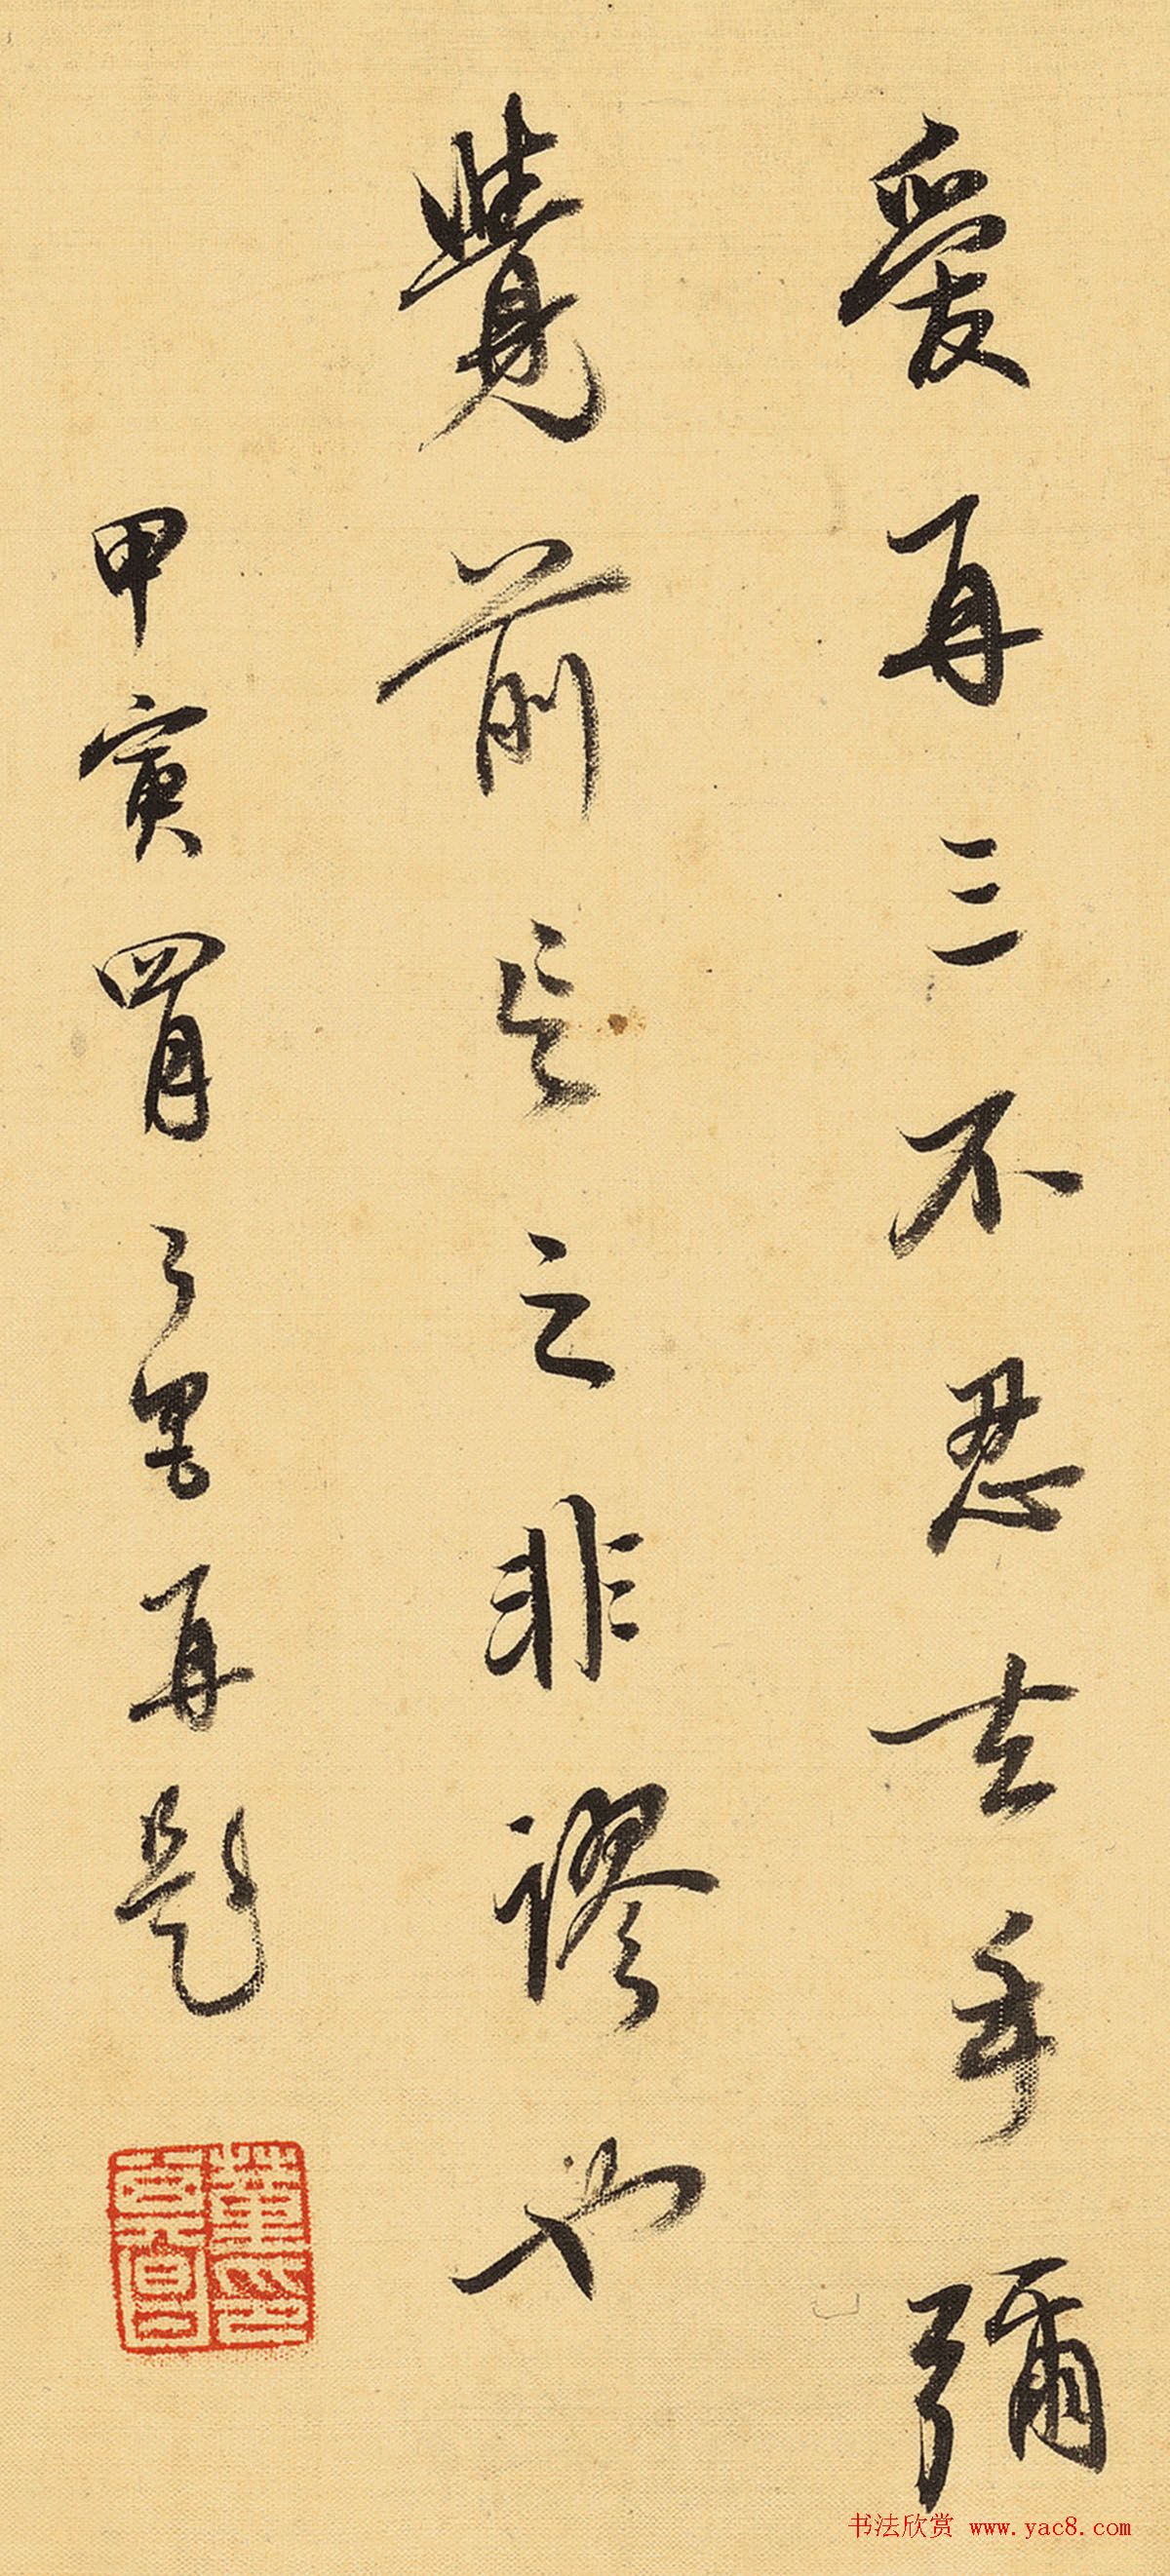 爱再三不忍去手彌
覺前言之非謬也
甲寅四月其昌再題
董其昌印
书法欣赏 www.yac8.com